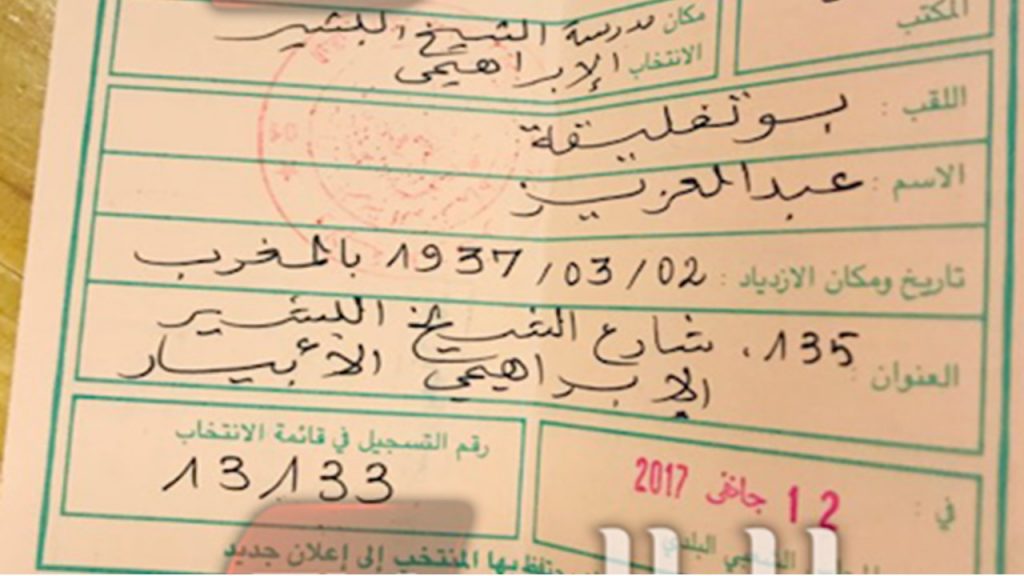 المكتب
مكان مدرسة الشيخ البشير
الانتخاب الإبراهيمي
اللقب : بوتفليقة
الاسم : عبدالعزيز
تاريخ ومكان الازدياد : 1937/03/02 بالمغرب
135، شارع الشيخ البشير
العنوان : الإبراهيمي الأبيار
رقم التسجيل في قائمة الانتخاب
13133
في : 12 جانفي 2017
الشعبي البلدي
بها المنتخب إلى إعلان جديد